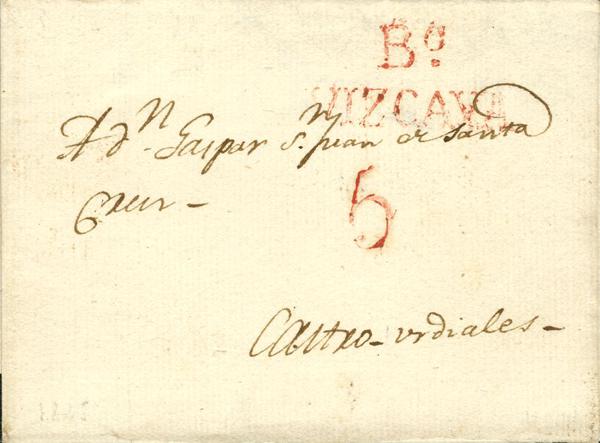 Bᵒ.
VIZCAYA
A dⁿ. Gaspar S.ⁿ Juan de Santa
Cruz -
5
Castro - urdiales -